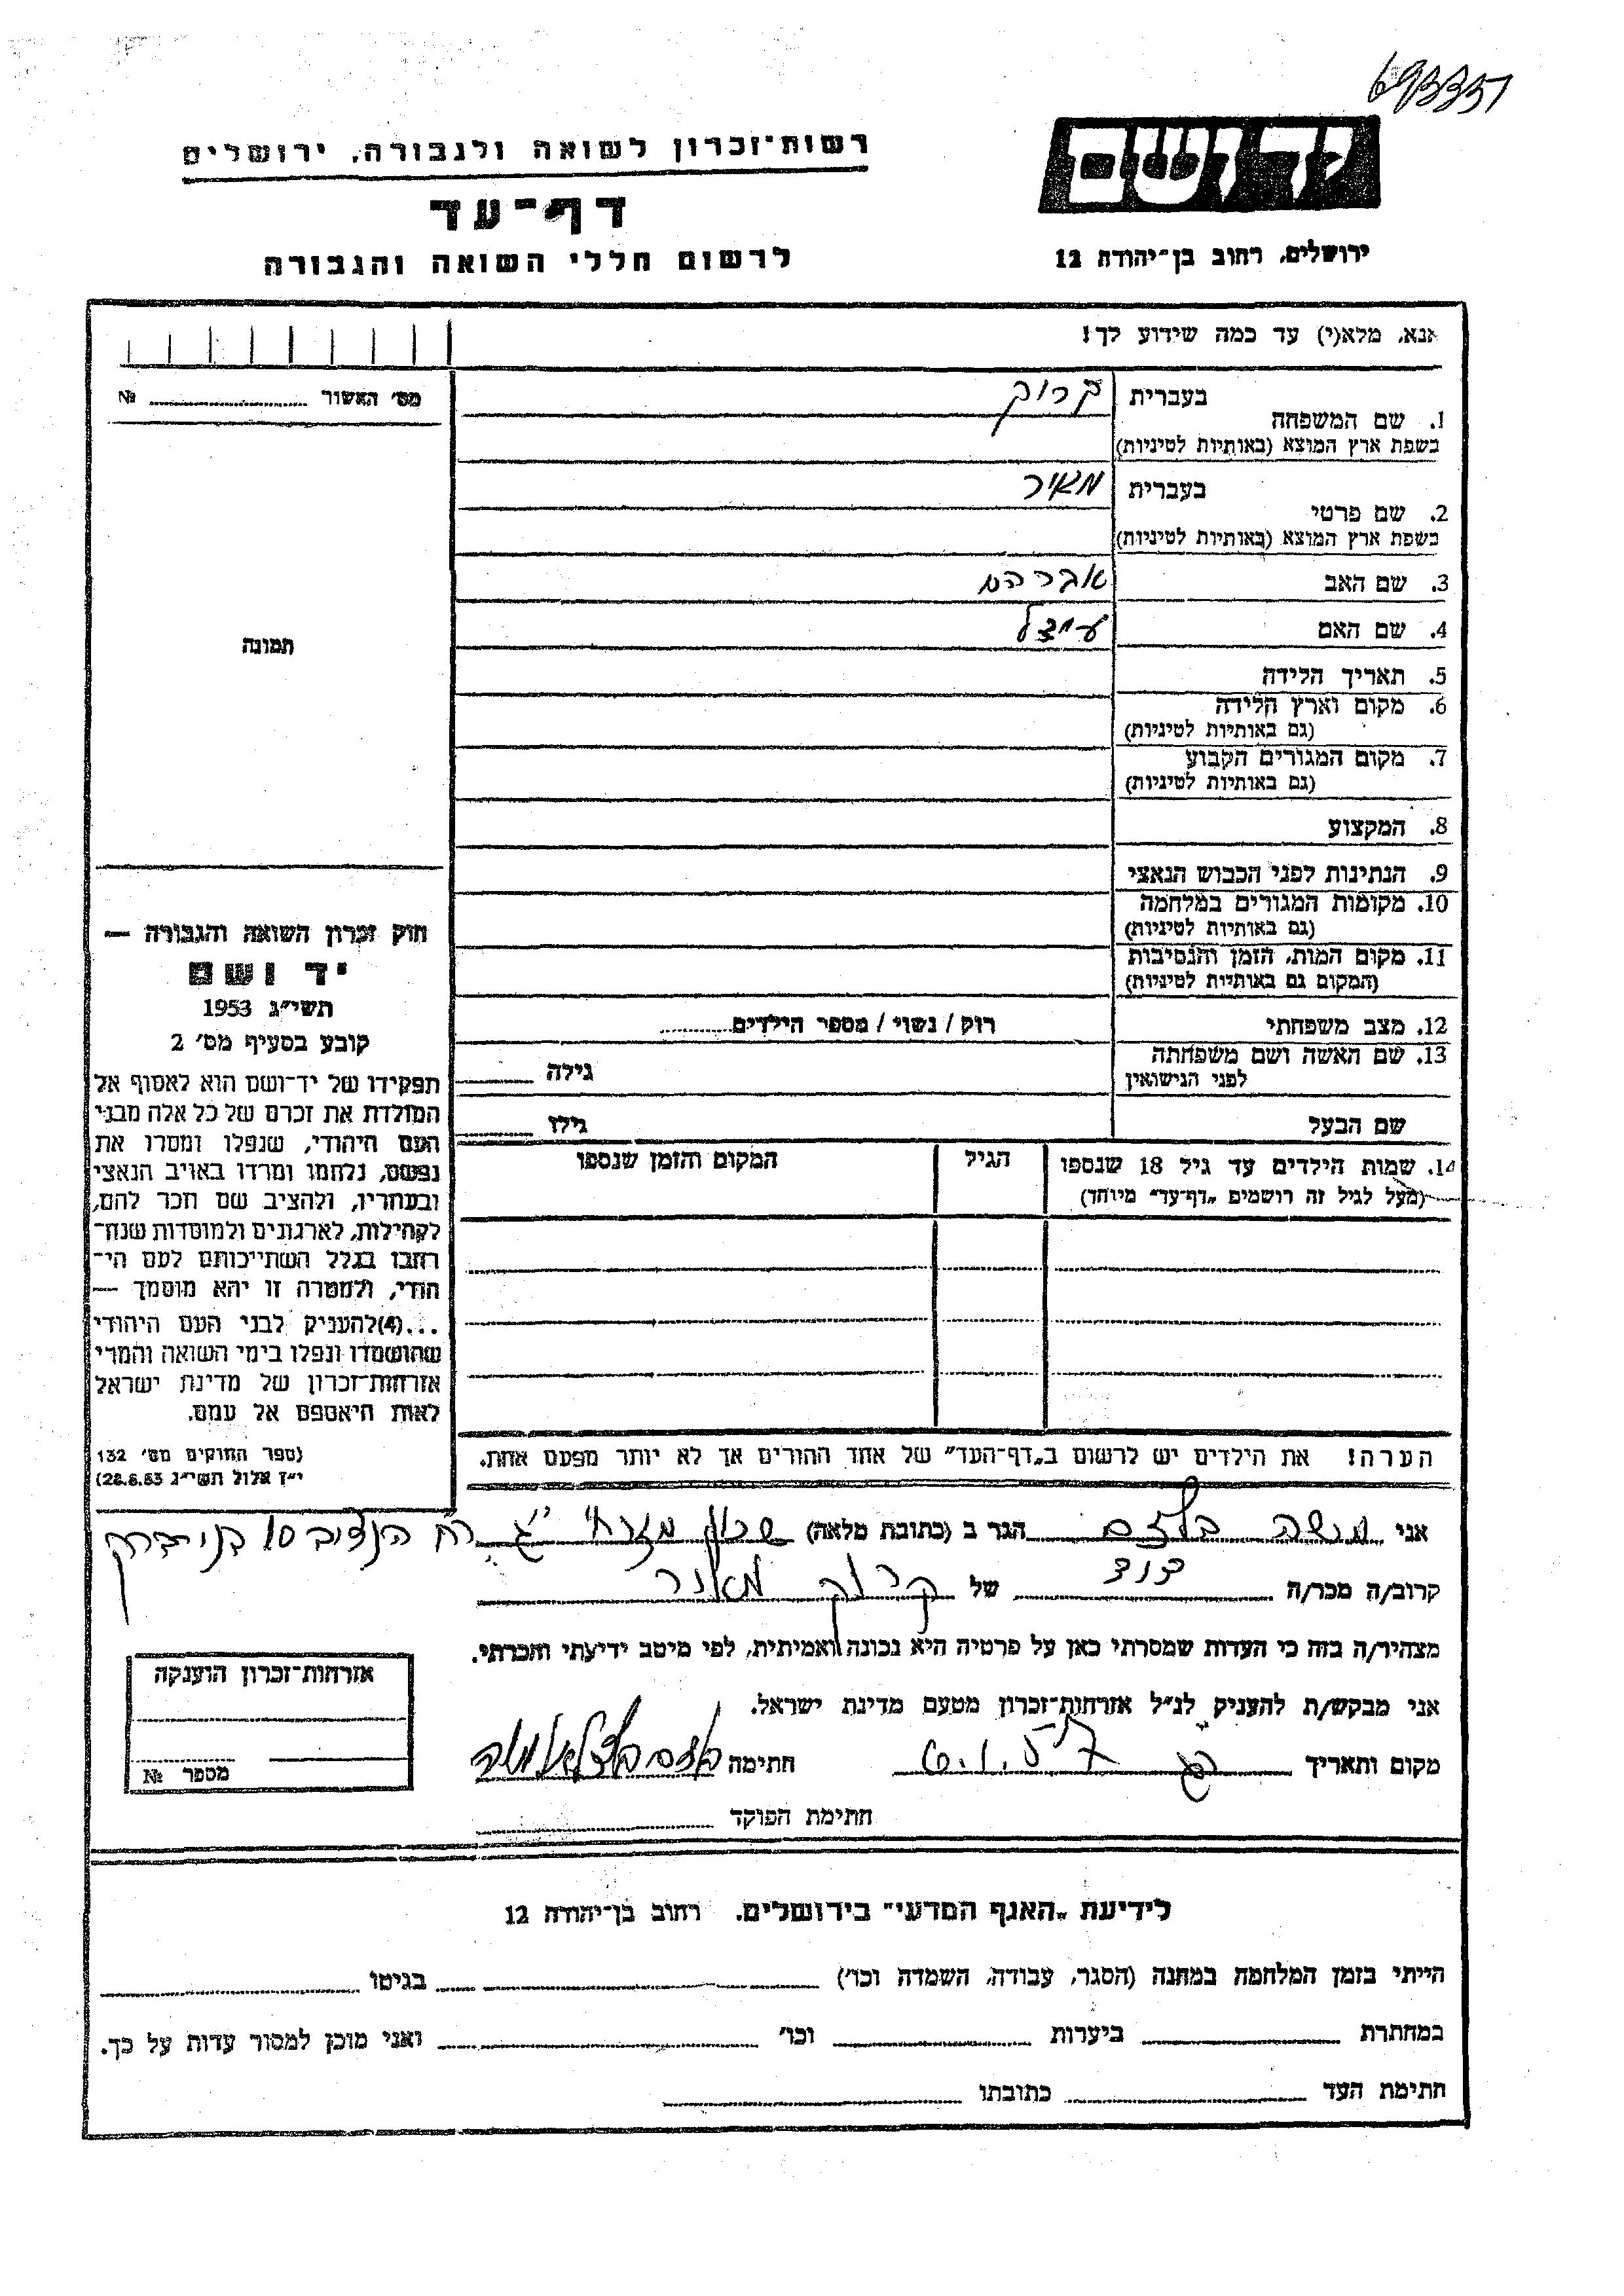 693351
יד ושם
רשות־זכרון לשואה ולגבורה, ירושלים
דף־עד
לרשום חללי השואה והגבורה
ירושלים, רחוב בן־יהודה 12
אנא, מלא(י) עד כמה שידוע לך!
מס׳ האשור № 
1. שם המשפחה בעברית קרוק
בשפת ארץ המוצא (באותיות לטיניות)
2. שם פרטי בעברית מאיר
בשפת ארץ המוצא (באותיות לטיניות)
3. שם האב אברהם
4. שם האם
תמונה
5. תאריך הלידה
6. מקום וארץ הלידה
(גם באותיות לטיניות)
7. מקום המגורים הקבוע
(גם באותיות לטיניות)
8. המקצוע
9. הנתינות לפני הכבוש הנאצי
10. מקומות המגורים במלחמה
(גם באותיות לטיניות)
11. מקום המות, הזמן והנסיבות
(המקום גם באותיות לטיניות)
12. מצב משפחתי רוק / נשוי / מספר הילדים
13. שם האשה ושם משפחתה
לפני הנישואין גילה
שם הבעל גילו
14. שמות הילדים עד גיל 18 שנספו הגיל המקום והזמן שנספו
(מעל לגיל זה רושמים „דף־עד״ מיוחד)
חוק זכרון השואה והגבורה —
יד ושם
תשי״ג 1953
קובע בסעיף מס׳ 2
תפקידו של יד־ושם הוא לאסוף אל
המולדת את זכרם של כל אלה מבני
העם היהודי, שנפלו ומסרו את
נפשם, נלחמו ומרדו באויב הנאצי
ובעוזריו, ולהציב שם וזכר להם,
לקהילות, לארגונים ולמוסדות שנח־
רבו בגלל השתייכותם לעם הי־
הודי, ולמטרה זו יהא מוסמך —
...(4)להעניק לבני העם היהודי
שהושמדו ונפלו בימי השואה והמרי
אזרחות־זכרון של מדינת ישראל
לאות היאספם אל עמם.
(ספר החוקים מס׳ 132
י״ז אלול תשי״ג 28.8.53)
הערה! את הילדים יש לרשום ב„דף־העד״ של אחד ההורים אך לא יותר מפעם אחת.
אני משה הגר ב (כתובת מלאה) שכון מזרחי ג׳ רח הנדיב 10 בני ברק
קרוב/ה מכר/ה דוד של קרוק מאיר
מצהיר/ה בזה כי העדות שמסרתי כאן על פרטיה היא נכונה ואמיתית, לפי מיטב ידיעתי והכרתי.
אני מבקש/ת להעניק לנ״ל אזרחות־זכרון מטעם מדינת ישראל.
מקום ותאריך חתימה
חתימת הפוקד
אזרחות־זכרון הוענקה
מספר №
לידיעת „האגף המדעי״ בירושלים. רחוב בן־יהודה 12
הייתי בזמן המלחמה במחנה (הסגר, עבודה, השמדה וכו׳) בגיטו
במחתרת ביערות וכו׳ ואני מוכן למסור עדות על כך.
חתימת העד כתובתו